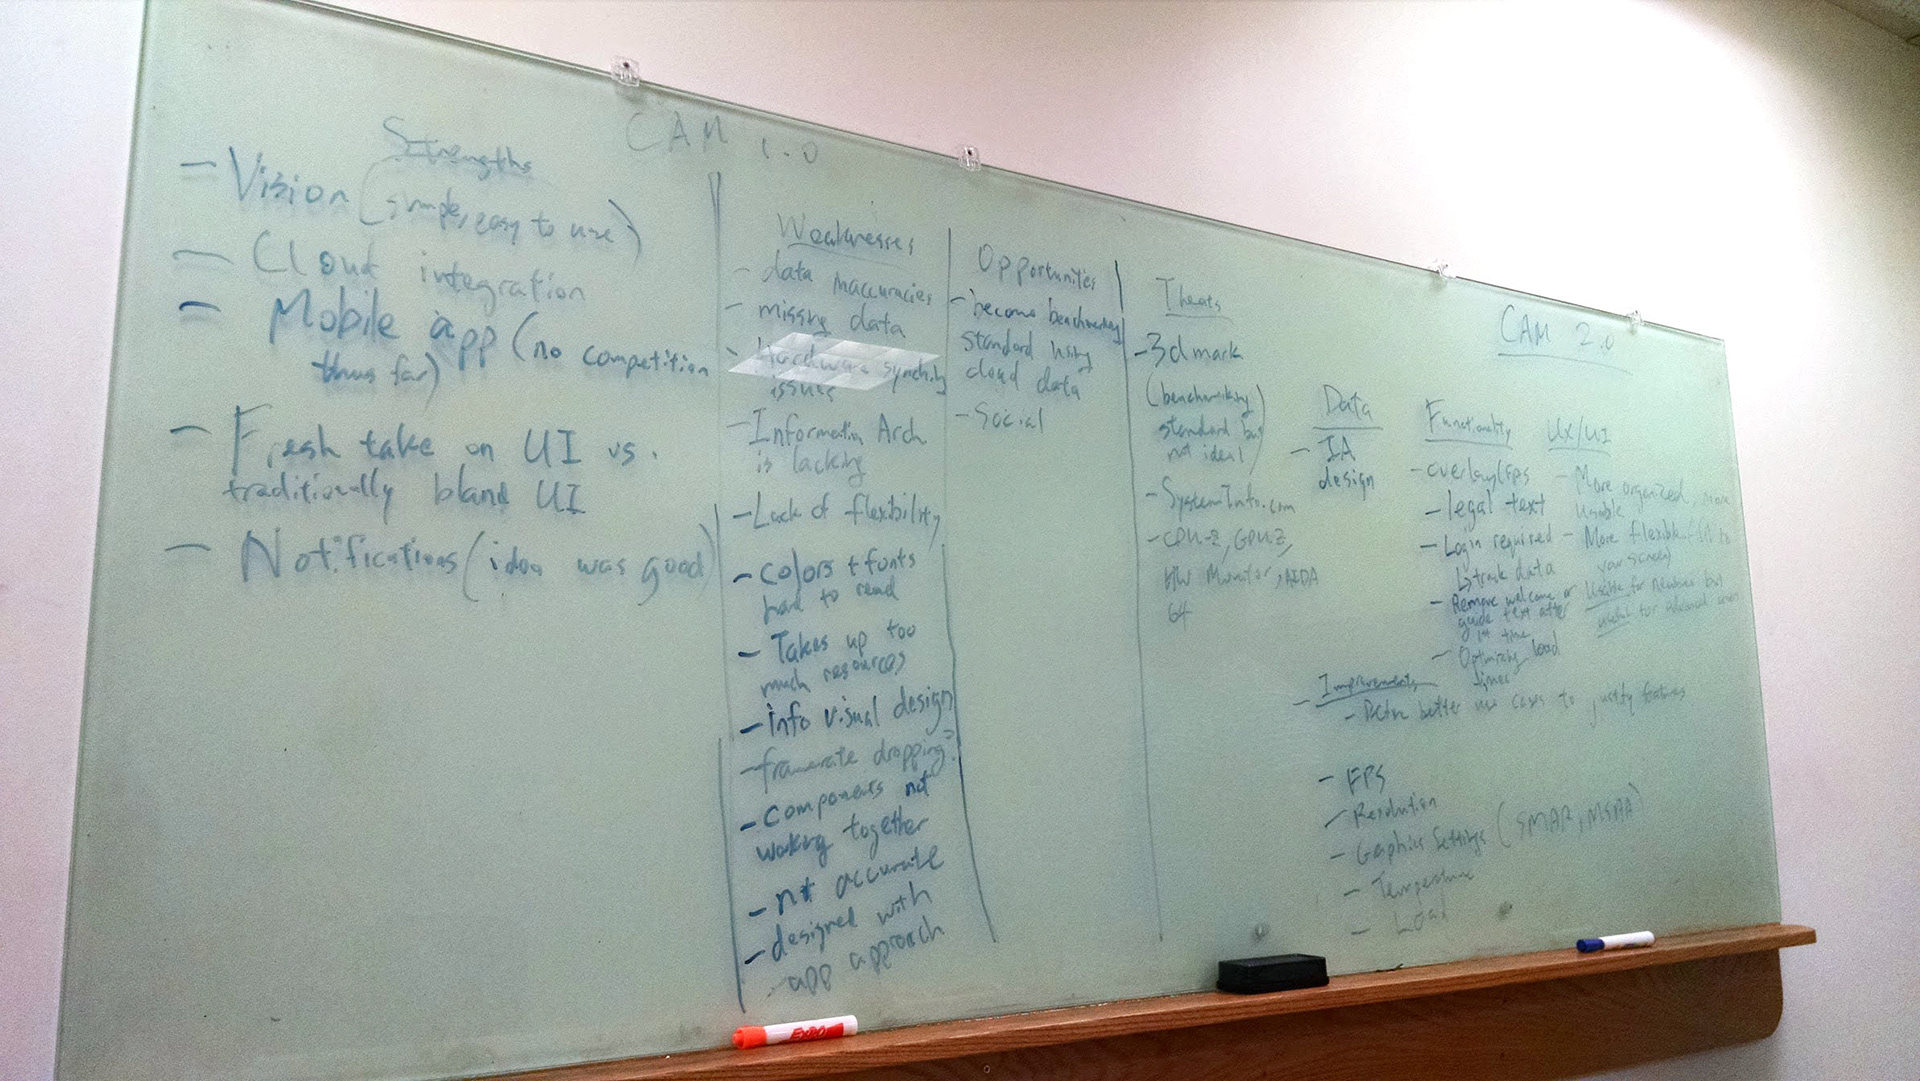 CAM 1.0
Strengths
- Vision (simple, easy to use)
- Cloud integration
- Mobile app (no competition
thus far)
- Fresh take on UI vs.
traditionally bland UI
- Notifications (idea was good)
Weaknesses
- data inaccuracies
- missing data
- Hardware synching
issues
- Information Arch
is lacking
- Lack of flexibility
- colors + fonts
hard to read
- Takes up too
much resources
- info visual design
- framerate dropping?
- components not
working together
- not accurate
- designed with
app approach
Opportunities
- become benchmarking
standard using
cloud data
- Social
Threats
- 3dmark
(benchmarking)
standard but
not ideal)
- SystemInfo.com
- CPU-Z, GPUZ,
HW Monitor, AIDA
64
CAM 2.0
Data
- IA
design
Functionality
- overlay/FPS
- legal text
- Login required
↳ track data
- Remove welcome or
guide text after
1st time
- Optimizing load
times
UX/UI
- More organized, more
usable
- More flexible
your screen)
Usable for newbies but
useful for advanced users
- Improvements
- better use cases to justify features
- FPS
- Resolution
- Graphics Settings (SMAA, MSAA)
- Temperature
- Load
EXPO